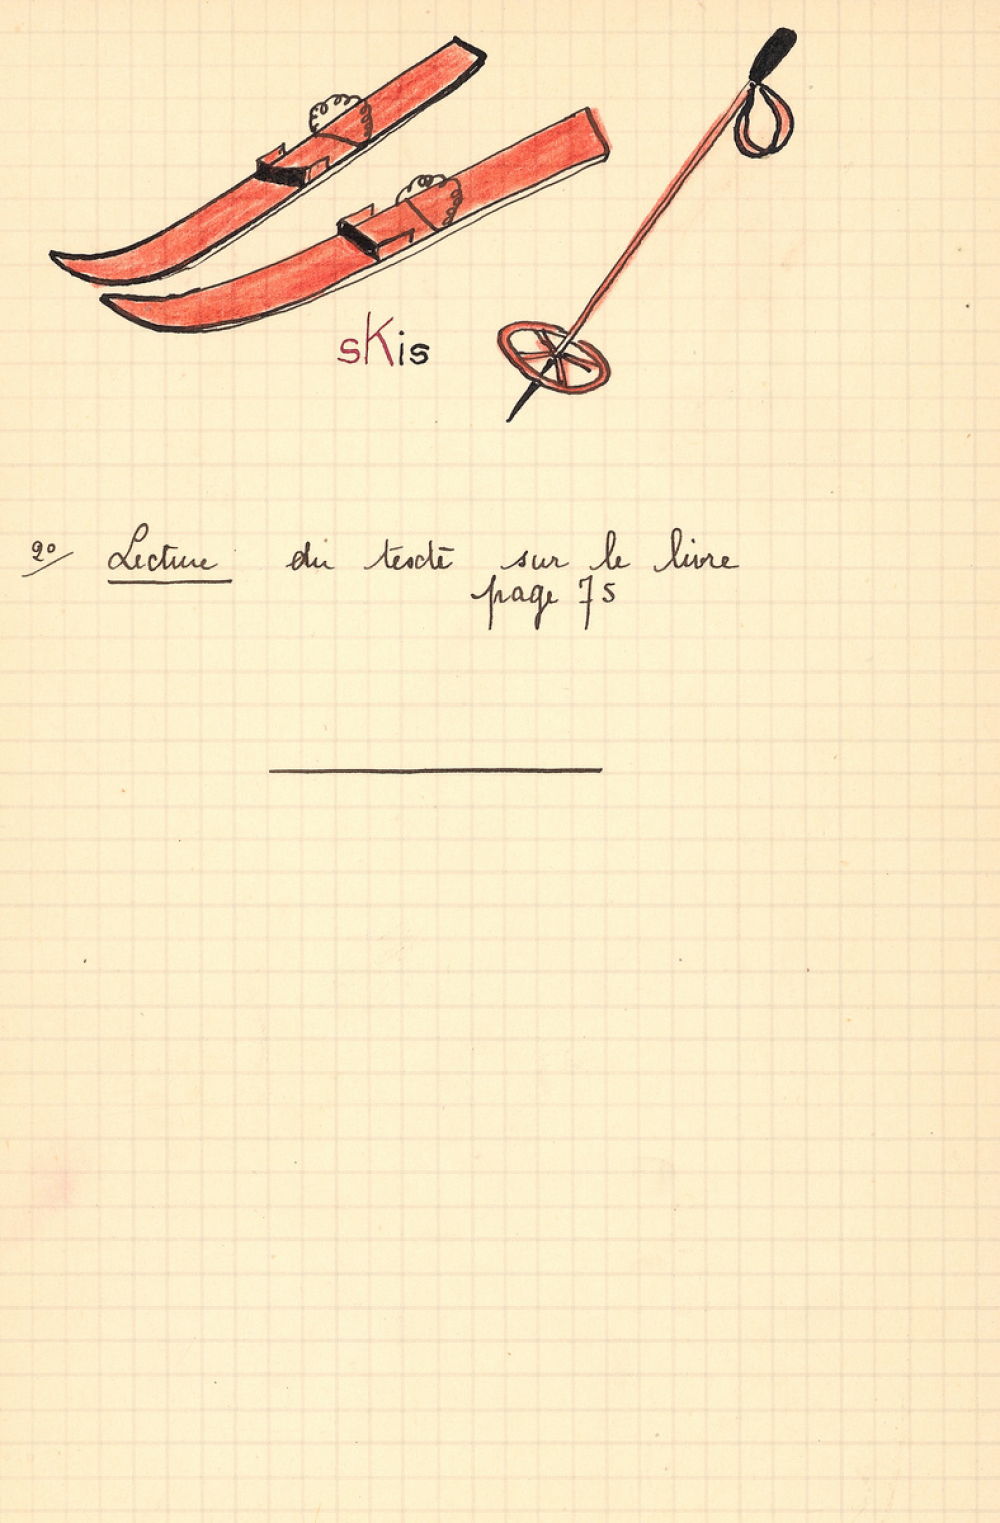 sKis
2°/ Lecture du texte sur le livre
page 75